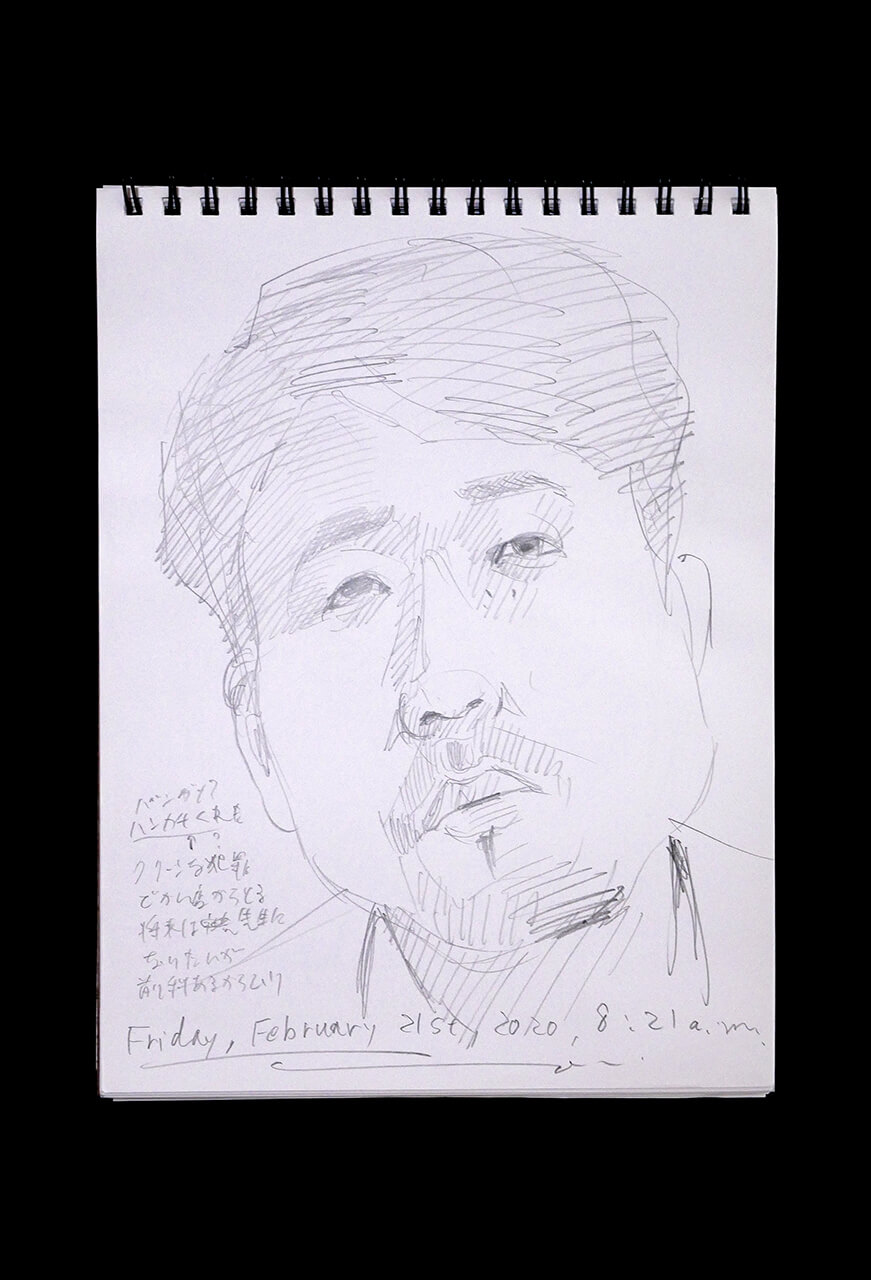 ハンカチくれも
↑?
クリーンな犯罪
でかい島からとる
将来は 先生に
なりたいが
前科あるからムリ
Friday, February 21st, 2020, 8:21 a.m.